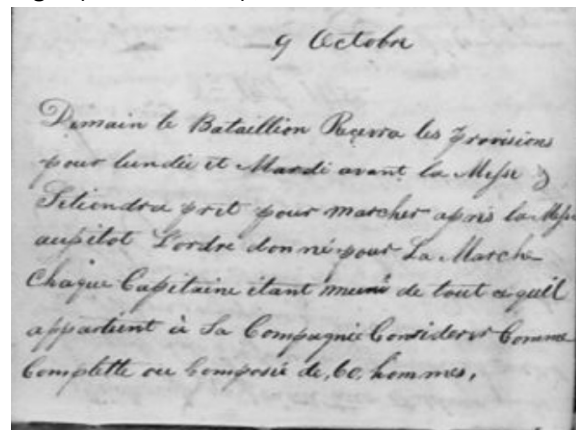 9 Octobre
Demain le Bataillion Recevra les provisions
pour lundie et Mardi avant la Messe &
Setiendra pret pour marcher après la Messe
aupitot L'ordre donné pour La Marche
Chaque Capitaine étant muni de tout ce quil
appartient à Sa Compagnie Considerer Comme
Complette ou Composée de, 60, hommes,